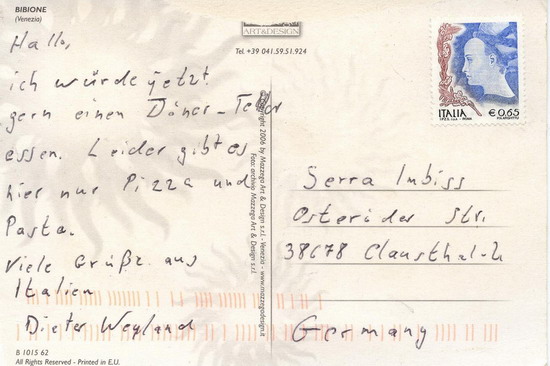 BIBIONE
(Venezia)
Hallo,
ich würde jetzt
gern einen Döner-Teller
essen. Leider gibt es
hier nur Pizza und
Pasta.
Viele Grüße aus
Italien
Dieter Weyland
B 1015 62
All Rights Reserved - Printed in E.U.
ART&DESIGN
Tel. +39 041.59.51.924
Copyright 2006 by Mazzega Art & Design s.r.l. - Venezia - www.mazzegadesign.it
Foto: archivio Mazzega Art & Design s.r.l.
ITALIA € 0,65
Serra Imbiss
Osteröder Str.
38678 Clausthal-Z
Germany